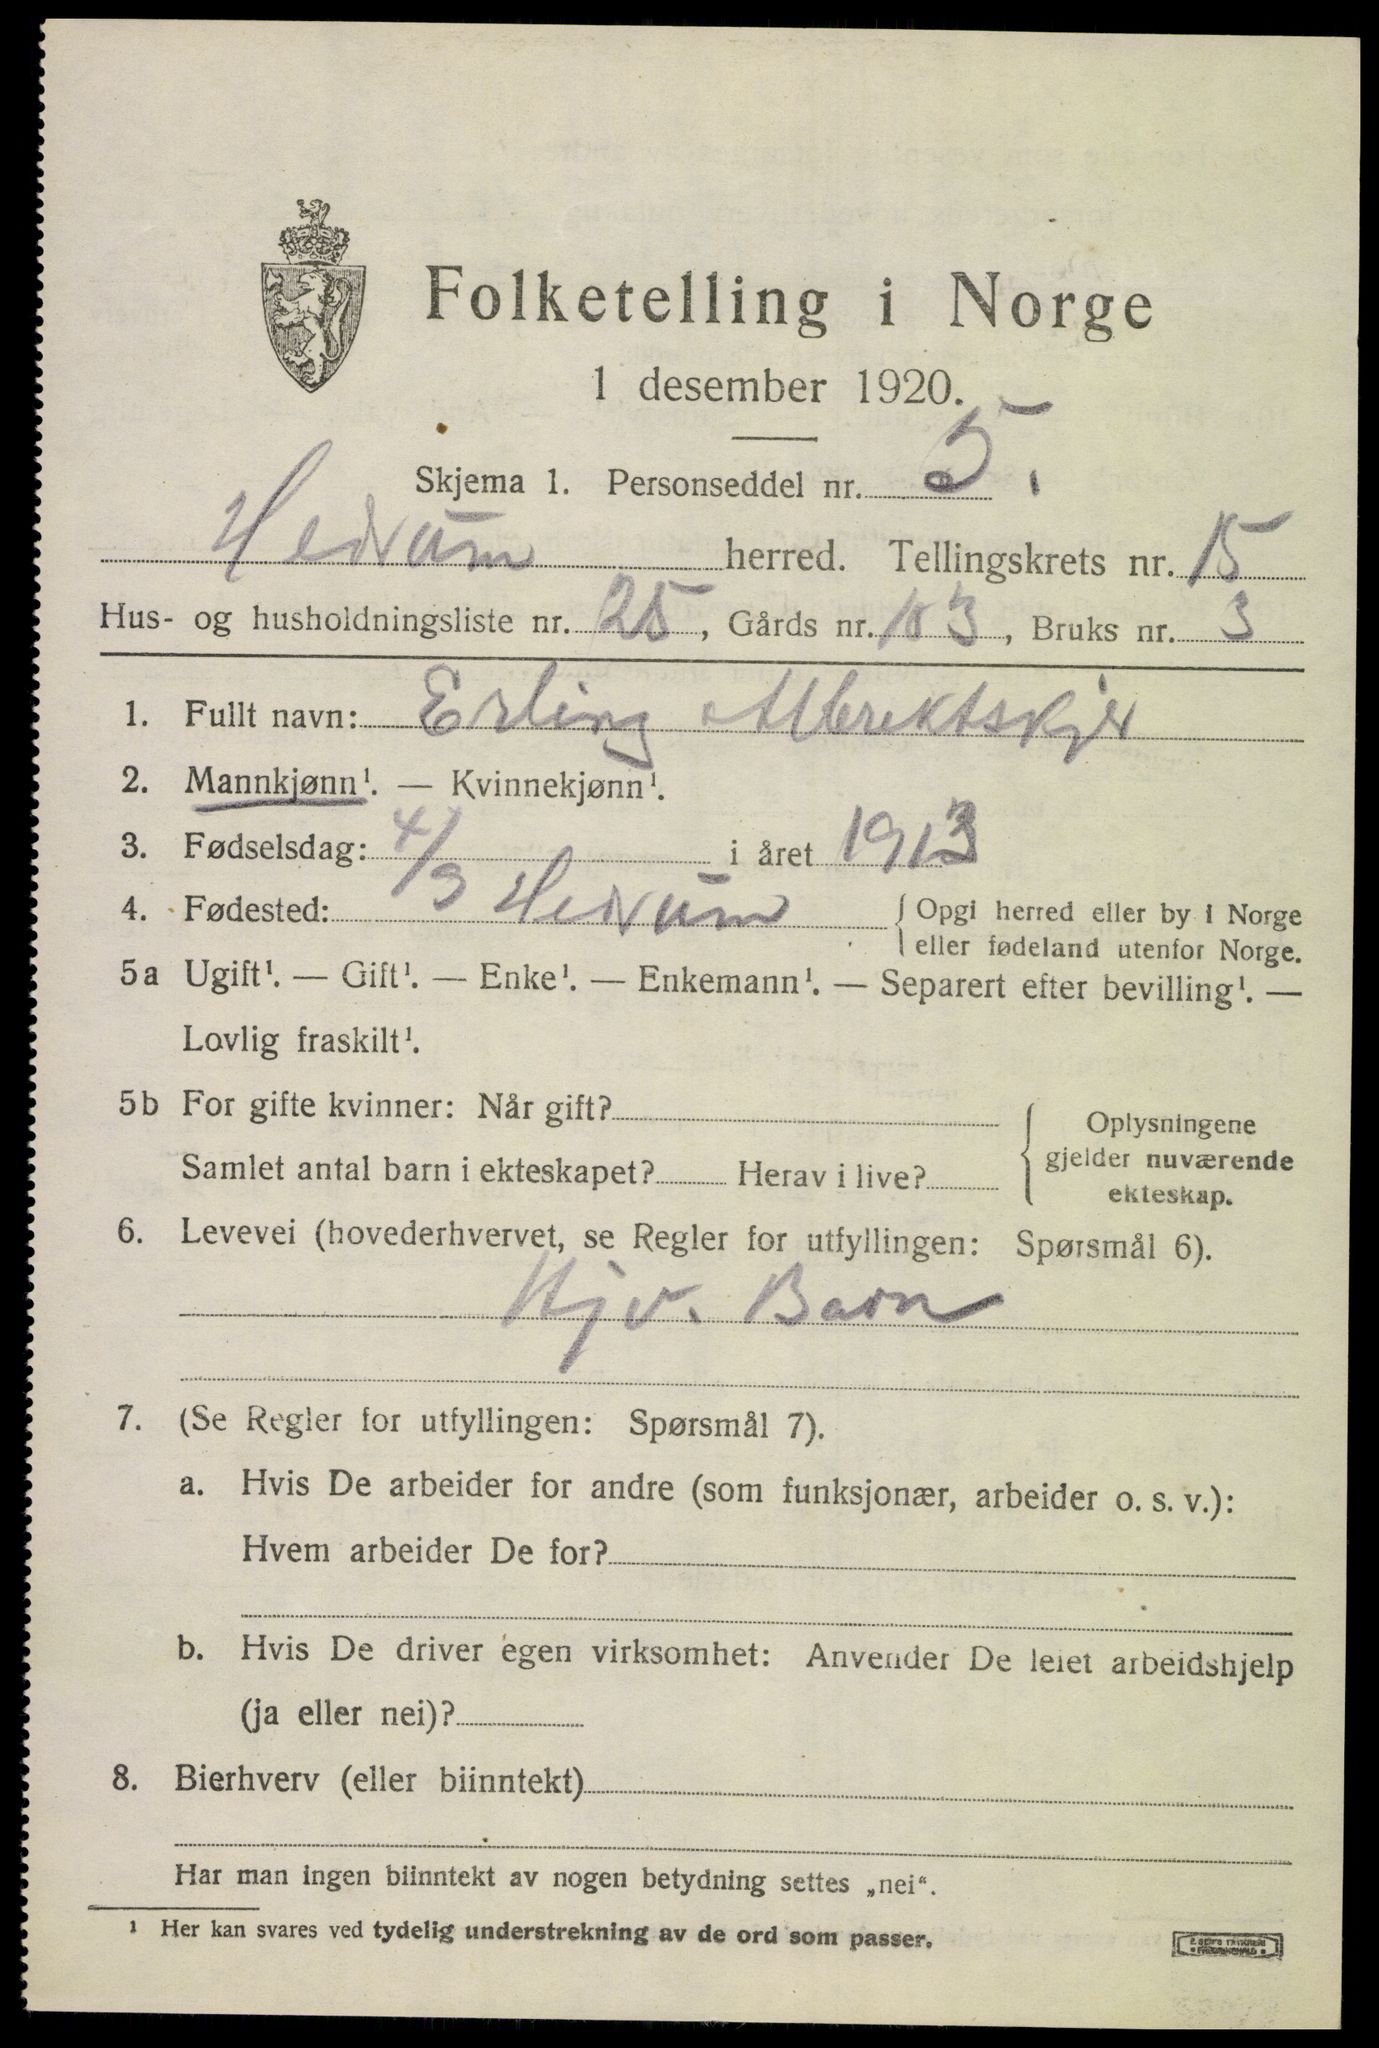 Folketelling i Norge
1 desember 1920.
Skjema 1. Personseddel nr. 5.
Hedrum herred. Tellingskrets nr. 15
Hus- og husholdningsliste nr. 25, Gårds nr. 103, Bruks nr. 3
1. Fullt navn: Erling Albrektskjer
2. Mannkjønn¹. — Kvinnekjønn¹.
3. Fødselsdag: 4/3 i året 1913
4. Fødested: Hedrum { Opgi herred eller by i Norge
eller fødeland utenfor Norge.
5a Ugift¹. — Gift¹. — Enke¹. — Enkemann¹. — Separert efter bevilling¹. —
Lovlig fraskilt¹.
5b For gifte kvinner: Når gift?
Samlet antal barn i ekteskapet? Herav i live?
{ Oplysningene
gjelder nuværende
ekteskap.
6. Levevei (hovederhvervet, se Regler for utfyllingen: Spørsmål 6).
Hjv. Barn
7. (Se Regler for utfyllingen: Spørsmål 7).
a. Hvis De arbeider for andre (som funksjonær, arbeider o. s. v.):
Hvem arbeider De for?
b. Hvis De driver egen virksomhet: Anvender De leiet arbeidshjelp
(ja eller nei)?
8. Bierhverv (eller biinntekt)
Har man ingen biinntekt av nogen betydning settes „nei“.
¹ Her kan svares ved tydelig understrekning av de ord som passer.